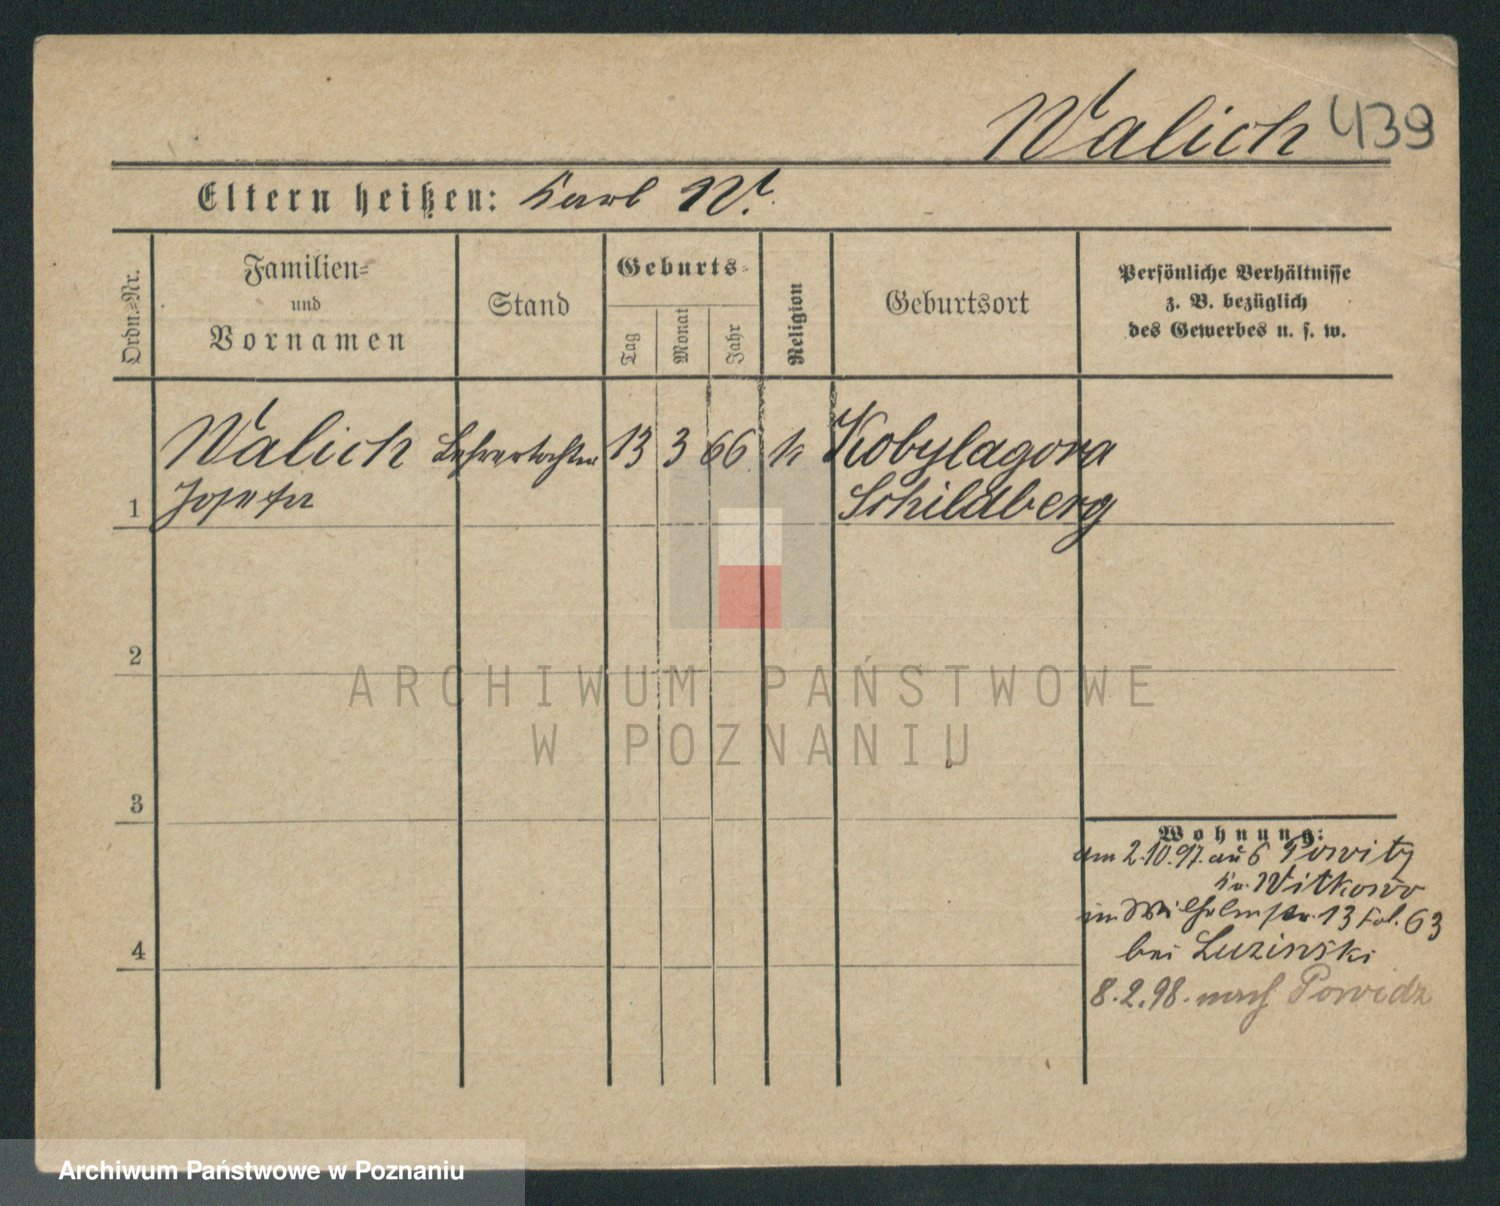 Walich 439
Eltern heißen: Karl W.
Ordn.-Nr.
Familien-
und
Vornamen
Stand
Geburts-
Tag
Monat
Jahr
Religion
Geburtsort
Persönliche Verhältnisse
z. B. bezüglich
des Gewerbes u. s. w.
Walich Lehrertochter 13 3 66 k Kobylagora
1 Josefa Schildberg
2
ARCHIWUM PAŃSTWOWE
W POZNANIU
3
Wohnung:
am 2.10.97. aus Powitz
Kr. Witkowo
in Wilhelmstr. 13 fol. 63
4 bei Luzinski
8.2.98. nach Powidz
Archiwum Państwowe w Poznaniu